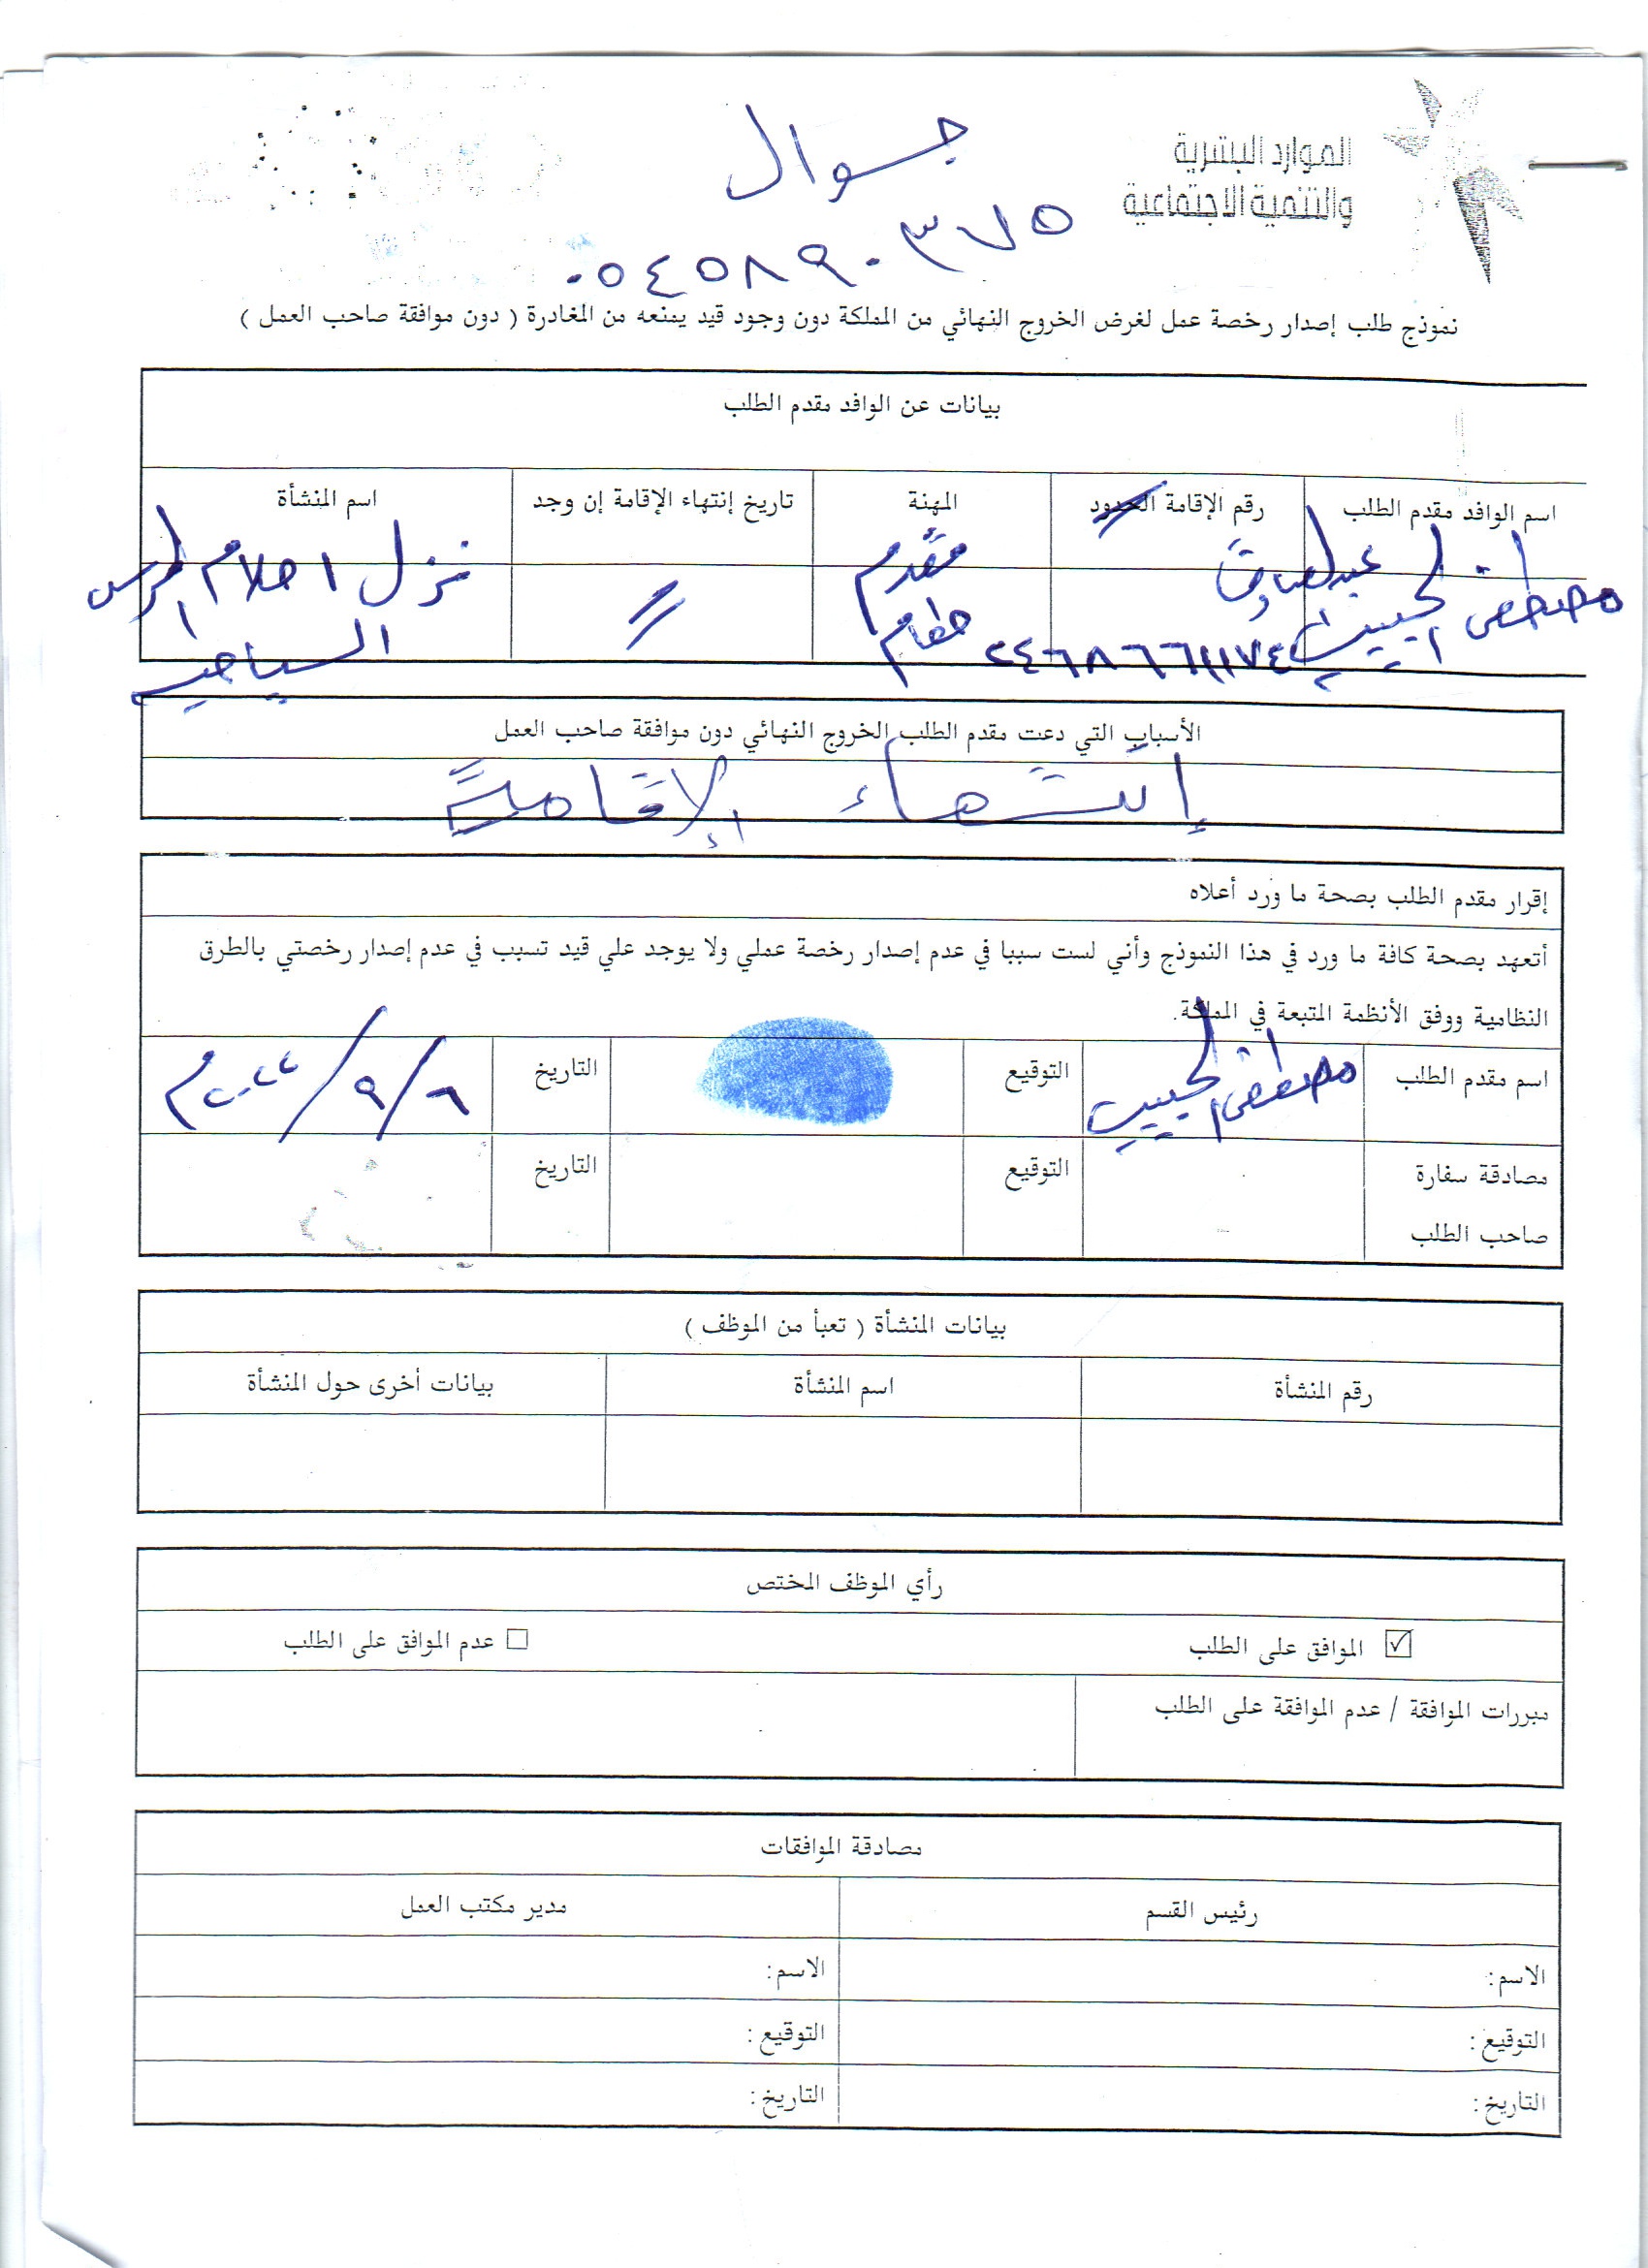 الموارد البشرية
والتنمية الاجتماعية
جوال
٠٥٤٥٨٩٠٣٧٥
نموذج طلب إصدار رخصة عمل لغرض الخروج النهائي من المملكة دون وجود قيد يمنعه من المغادرة ( دون موافقة صاحب العمل )
بيانات عن الوافد مقدم الطلب
اسم الوافد مقدم الطلب رقم الإقامة الحدود المهنة تاريخ إنتهاء الإقامة إن وجد اسم المنشأة
مصطفى الحبيب عبدالصادق مقدم طعام نزل احلام
السياحي
الأسباب التي دعت مقدم الطلب الخروج النهائي دون موافقة صاحب العمل
إنتهاء الإقامة
إقرار مقدم الطلب بصحة ما ورد أعلاه
أتعهد بصحة كافة ما ورد في هذا النموذج وأني لست سببا في عدم إصدار رخصة عملي ولا يوجد علي قيد تسبب في عدم إصدار رخصتي بالطرق
النظامية ووفق الأنظمة المتبعة في المملكة.
اسم مقدم الطلب مصطفى الحبيب التوقيع التاريخ ٦/٩/٢٠٢٢م
مصادقة سفارة التوقيع التاريخ
صاحب الطلب
بيانات المنشأة ( تعبأ من الموظف )
رقم المنشأة اسم المنشأة بيانات أخرى حول المنشأة
رأي الموظف المختص
☑ الموافق على الطلب ☐ عدم الموافق على الطلب
مبررات الموافقة / عدم الموافقة على الطلب
مصادقة الموافقات
رئيس القسم مدير مكتب العمل
الاسم: الاسم:
التوقيع: التوقيع:
التاريخ: التاريخ: